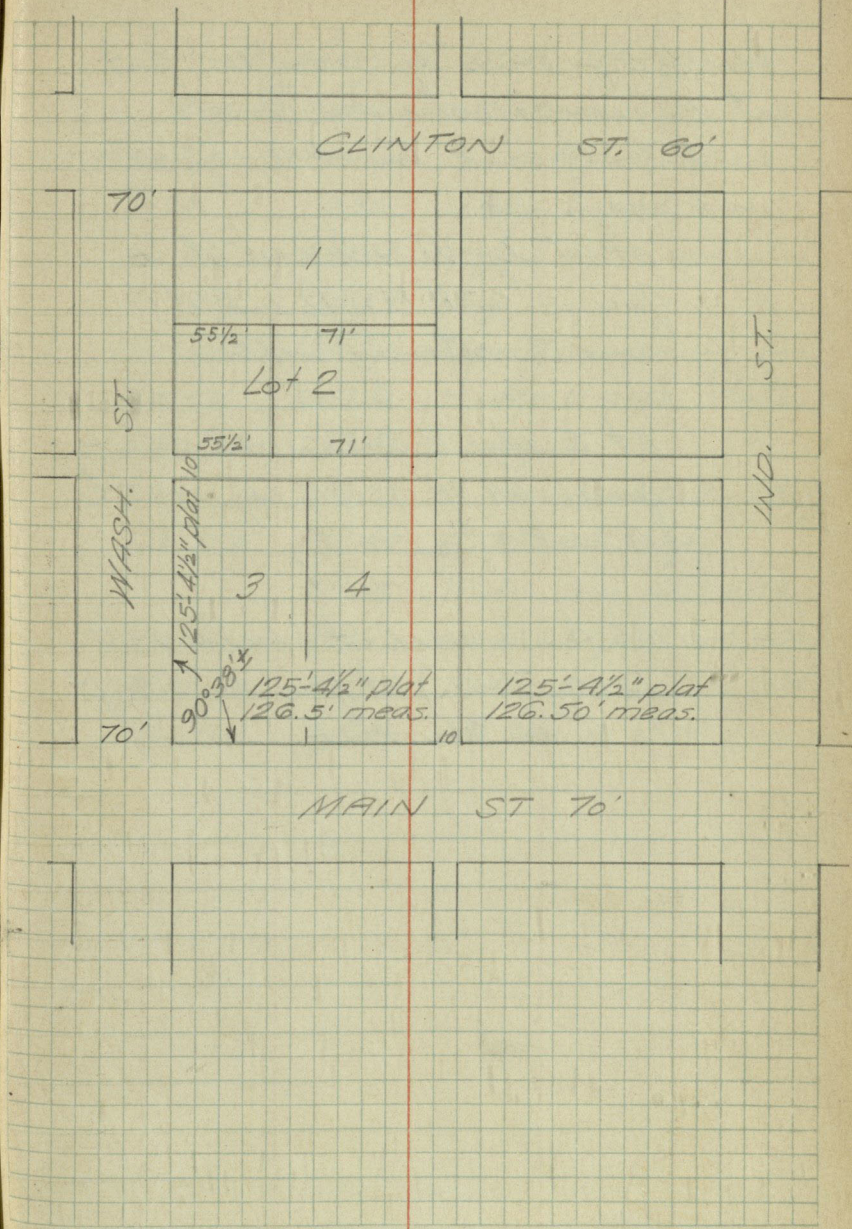 CLINTON ST. 60'
70'
1
55 1/2' 71'
Lot 2
55 1/2' 71'
WASH. ST.
IND. ST.
125'-4 1/2" plat 10
3 4
90°38'
125'-4 1/2" plat
126.5' meas.
125'-4 1/2" plat
126.50' meas.
70'
10
MAIN ST 70'